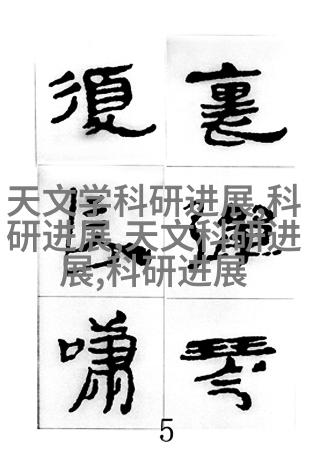 裏
彈
琴
復
長
嘯
天文学科研进展,科
研进展,天文科研进
展,科研进展
5